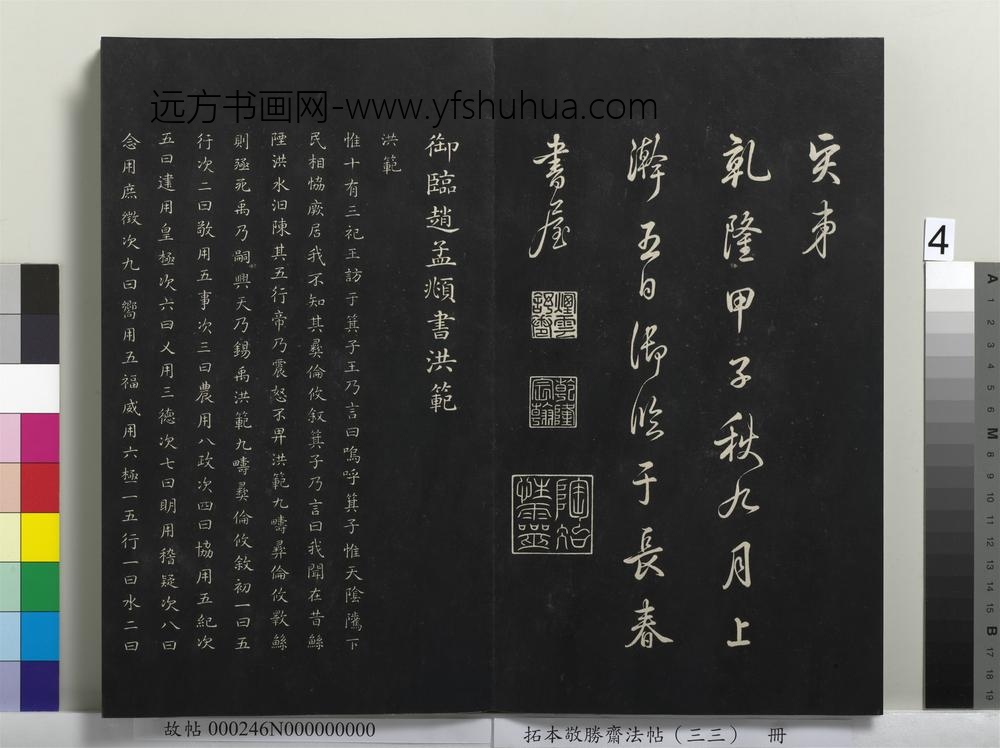 远方书画网-www.yfshuhua.com
吴東
乾隆甲子秋九月上
澣五日御臨于長春
書屋
煙雲舒卷
乾隆宸翰
陶冶性靈
御臨趙孟頫書洪範
洪範
惟十有三祀王訪于箕子王乃言曰嗚呼箕子惟天陰隲下
民相恊厥居我不知其彞倫攸叙箕子乃言曰我聞在昔鯀
陻洪水汩陳其五行帝乃震怒不畀洪範九疇彞倫攸斁鯀
則殛死禹乃嗣興天乃錫禹洪範九疇彞倫攸敘初一曰五
行次二曰敬用五事次三曰農用八政次四曰協用五紀次
五曰建用皇極次六曰乂用三德次七曰明用稽疑次八曰
念用庶徵次九曰嚮用五福威用六極一五行一曰水二曰
4
A
1
2
3
4
5
6
M
8
9
10
11
12
13
14
15
B
17
18
19
故帖 000246N000000000
拓本敬勝齋法帖（三三） 冊